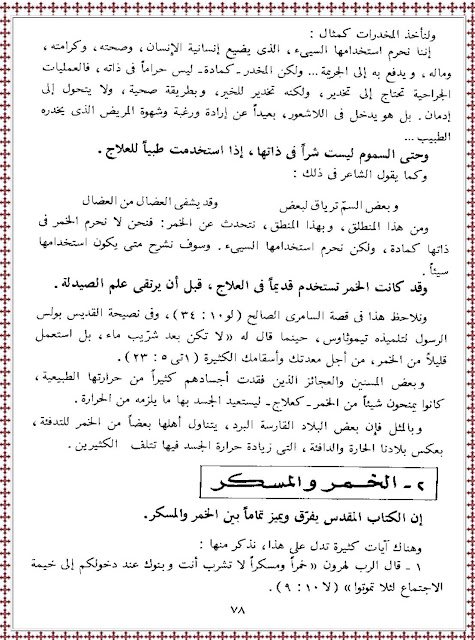 ولنأخذ المخدرات كمثال :
إننا نحرم استخدامها السيىء ، الذى يضيع إنسانية الإنسان ، وصحته ، وكرامته ،
وماله ، ويدفع به إلى الجريمة ... ولكن المخدر ـ كمادة ـ ليس حراماً فى ذاته ، فالعمليات
الجراحية تحتاج إلى تخدير ، ولكنه تخدير للخير ، وبطريقة صحية ، ولا يتحول إلى
إدمان . بل هو يدخل فى اللاشعور ، بعيداً عن إرادة ورغبة وشهوة المريض الذى يخدره
الطبيب ...
وحتى السموم ليست شراً فى ذاتها ، إذا استخدمت طبياً للعلاج .
وكما يقول الشاعر فى ذلك :
وبعض السمّ ترياق لبعض وقد يشفى العضال من العضال
ومن هذا المنطلق ، وبهذا المنطق ، نتحدث عن الخمر : فنحن لا نحرم الخمر فى
ذاتها كمادة ، ولكن نحرم استخدامها السيىء . وسوف نشرح متى يكون استخدامها
سيئاً .
وقد كانت الخمر تستخدم قديماً فى العلاج ، قبل أن يرتقى علم الصيدلة .
ونلاحظ هذا فى قصة السامرى الصالح ( لو ١٠ : ٣٤ ) ، وفى نصيحة القديس بولس
الرسول لتلميذه تيموثاوس ، حينما قال له « لا تكن بعد شرّيب ماء ، بل استعمل
قليلاً من الخمر ، من أجل معدتك وأسقامك الكثيرة ( ١تى ٥ : ٢٣ ) .
وبعض المسنين والعجائز الذين فقدت أجسادهم كثيراً من حرارتها الطبيعية ،
كانوا يمنحون شيئاً من الخمر ـ كعلاج ـ ليستعيد الجسد بها ما يلزمه من الحرارة .
وبالمثل فإن بعض البلاد القارسة البرد ، يتناول أهلها بعضاً من الخمر للتدفئة ،
بعكس بلادنا الحارة والدافئة ، التى زيادة حرارة الجسد فيها تتلف الكثيرين .
٢ ـ الخمر والمسكر
إن الكتاب المقدس يفرّق ويميز تماماً بين الخمر والمسكر .
وهناك آيات كثيرة تدل على هذا ، نذكر منها :
١ ـ قال الرب لهرون « خمراً ومسكراً لا تشرب أنت وبنوك عند دخولكم إلى خيمة
الاجتماع لئلا تموتوا » ( لا ١٠ : ٩ ) .
٧٨